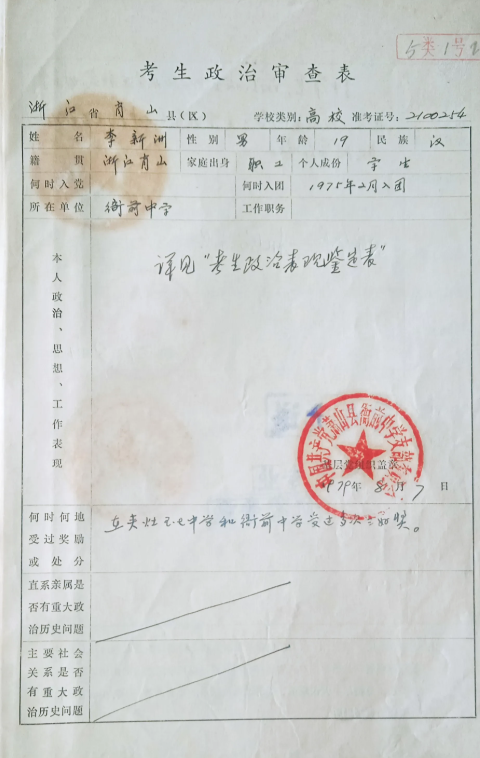 5类1号
考生政治审查表
浙江省肖山县(区) 学校类别:高校 准考证号:2100254
姓名 李新洲 性别 男 年龄 19 民族 汉
籍贯 浙江肖山 家庭出身 职工 个人成份 学生
何时入党 何时入团 1975年2月入团
所在单位 衙前中学 工作职务
本人政治、思想、工作表现
详见"考生政治表现鉴定表"
中国共产党萧山县衙前中学支部委员会
1979年8月7日
何时何地受过奖励或处分
在 中学和衙前中学受过多次三好奖。
直系亲属是否有重大政治历史问题
主要社会关系是否有重大政治历史问题